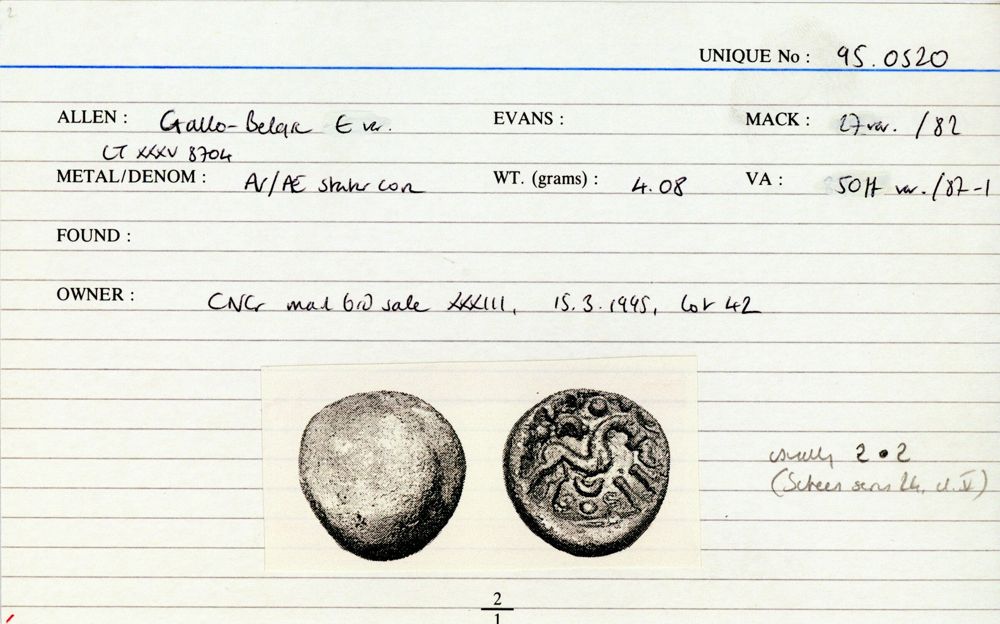 2
UNIQUE No : 95.0520
ALLEN : Gallo-Belgic E var. EVANS : MACK : 27 var. / 82
LT XXXV 8704
METAL/DENOM : AV/Æ stater core WT. (grams) : 4.08 VA : 50 var. / 87-1
FOUND :
OWNER : CNG mail bid sale XXXIII, 15.3.1995, lot 42
usually 2 • 2
(Scheers series 24, cl. V)
2
1